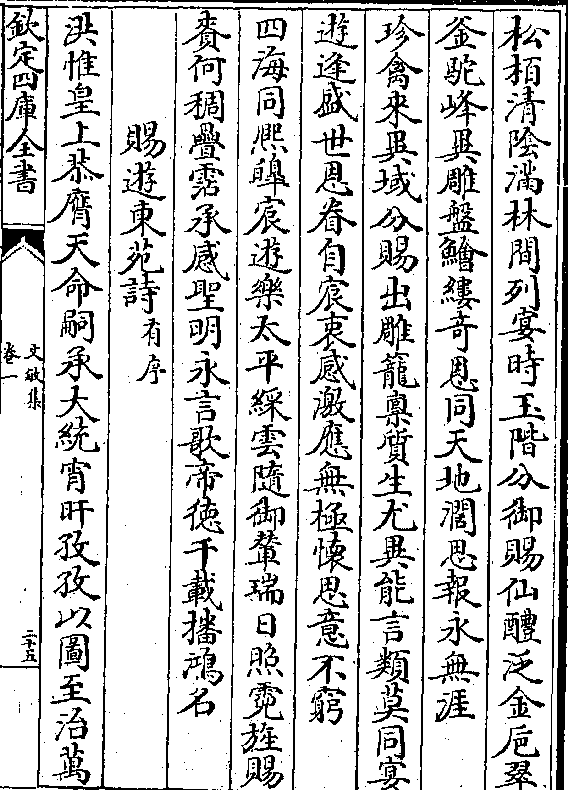 松栢清陰滿林間列宴時玉階分御賜仙醴泛金巵翠
釜駝峰異雕盤鱠縷竒恩同天地濶思報永無涯
珍禽來異域分賜出雕籠禀質生尤異能言類莫同宴
遊逢盛世恩眷自宸衷感激應無極懷恩意不窮
四海同熈皥宸遊樂太平綵雲隨御輦瑞日照霓旌賜
賚何稠疊霑承感聖明永言歌帝德千載播鴻名
賜遊東苑詩有序
洪惟皇上恭膺天命嗣承大統宵旰孜孜以圖至治萬
欽定四庫全書
文敏集
卷一
二十五